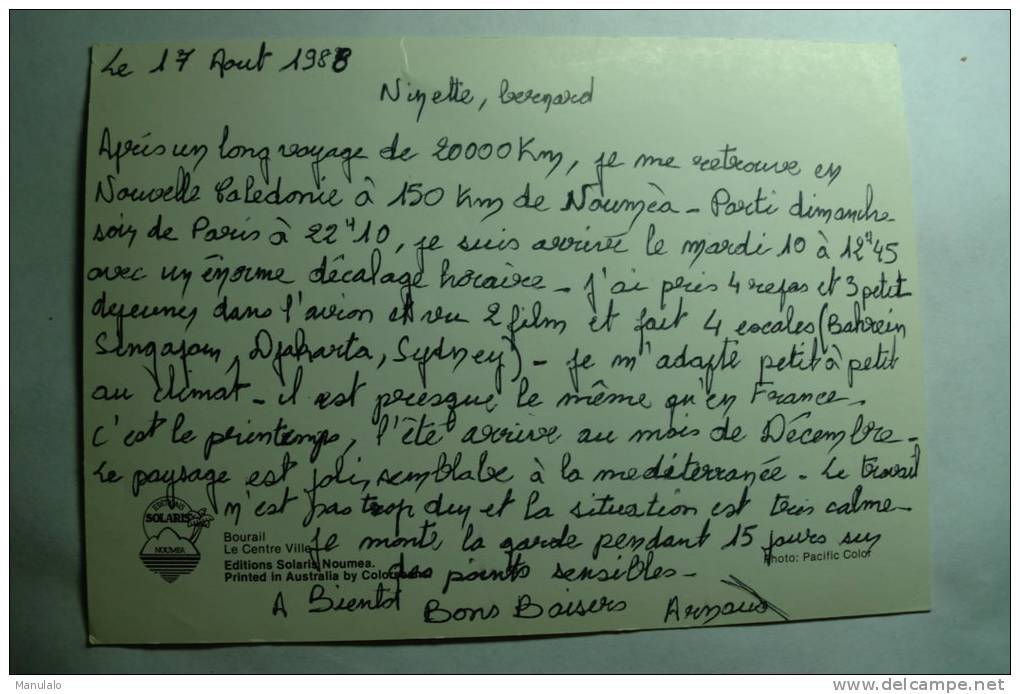 Le 17 Aout 1988
Ninette, bernard
Aprés un long voyage de 20000 Km, je me retrouve en
Nouvelle Caledonie à 150 Km de Nouméa - Parti dimanche
soir de Paris à 22H10, je suis arrivé le mardi 10 à 12H45
avec un énorme décalage horaire - J'ai pris 4 repas et 3 petit
dejeuner dans l'avion et vu 2 film et fait 4 escales (Bahrein
Singapour, Djakarta, Sydney) - Je m'adapte petit à petit
au climat - il est presque le même qu'en France -
C'est le printemps, l'été arrive au mois de Décembre -
Le paysage est joli, semblabe à la mediterranée - Le travail
n'est pas trop dur et la situation est très calme -
Je monte la garde pendant 15 jours sur
des points sensibles -
A Bientot Bons Baisers Arnaud
EDITIONS
SOLARIS
NOUMEA
Bourail
Le Centre Ville
Editions Solaris Noumea.
Printed in Australia by
Photo: Pacific Color
Manulalo
www.delcampe.net